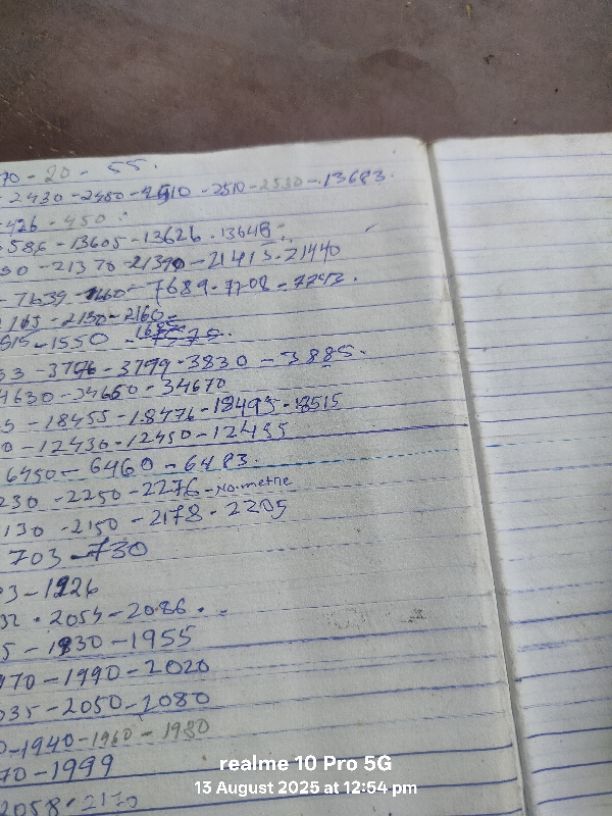 70-20-55.
-2430-2480-4910-2510-2530-13683.
-426-450
586-13605-13626.13648
50-21370-21390-21413.21440
-7639-7660-7689-7708-7743.
2165-2130-2160-
515-1550-1685
53-3776-3799-3830-3885.
4630-34650-34670
5-18455-18476-18493-18515
0-12430-12450-12455
6450-6460-6483.
230-2250-2276-No.metre
130-2150-2178-2205
703-730
3-1926
32.2054-2086.
5-1930-1955
970-1990-2020
035-2050-2080
0-1940-1960-1980
70-1999
2058-2170
realme 10 Pro 5G
13 August 2025 at 12:54 pm